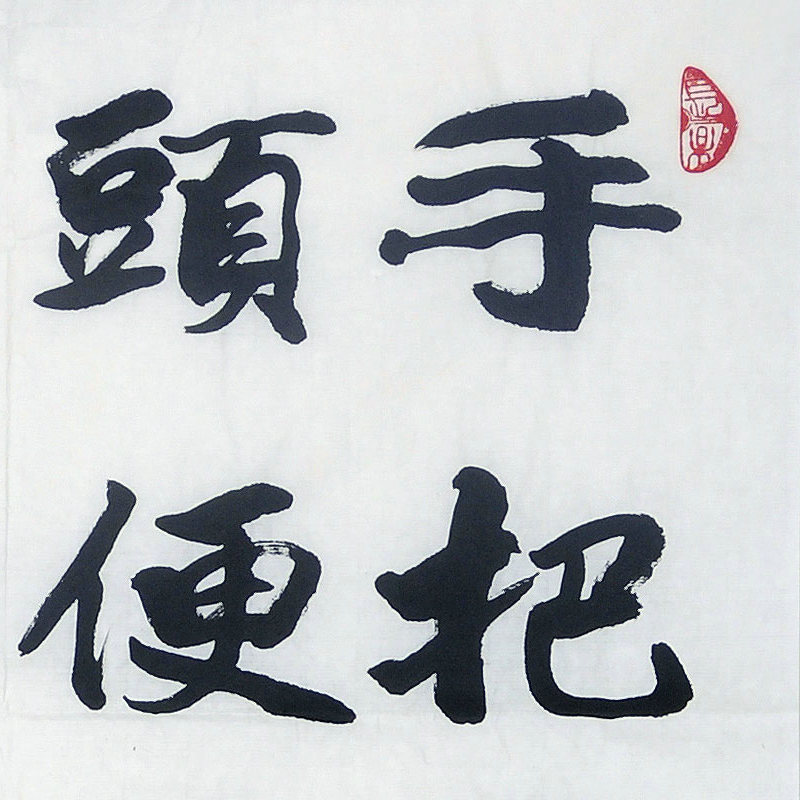 手把
頭便